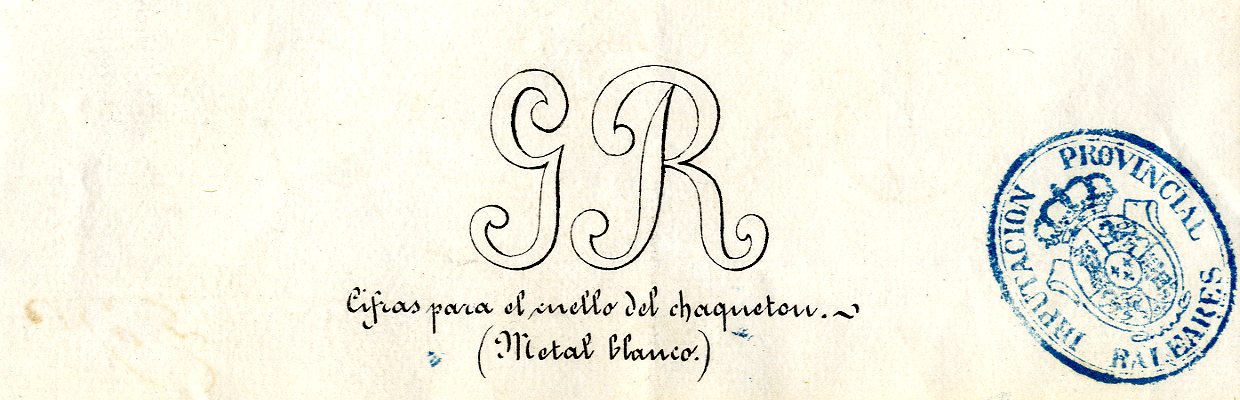 GR
Cifras para el cuello del chaqueton.
(Metal blanco.)
DIPUTACION PROVINCIAL
BALEARES